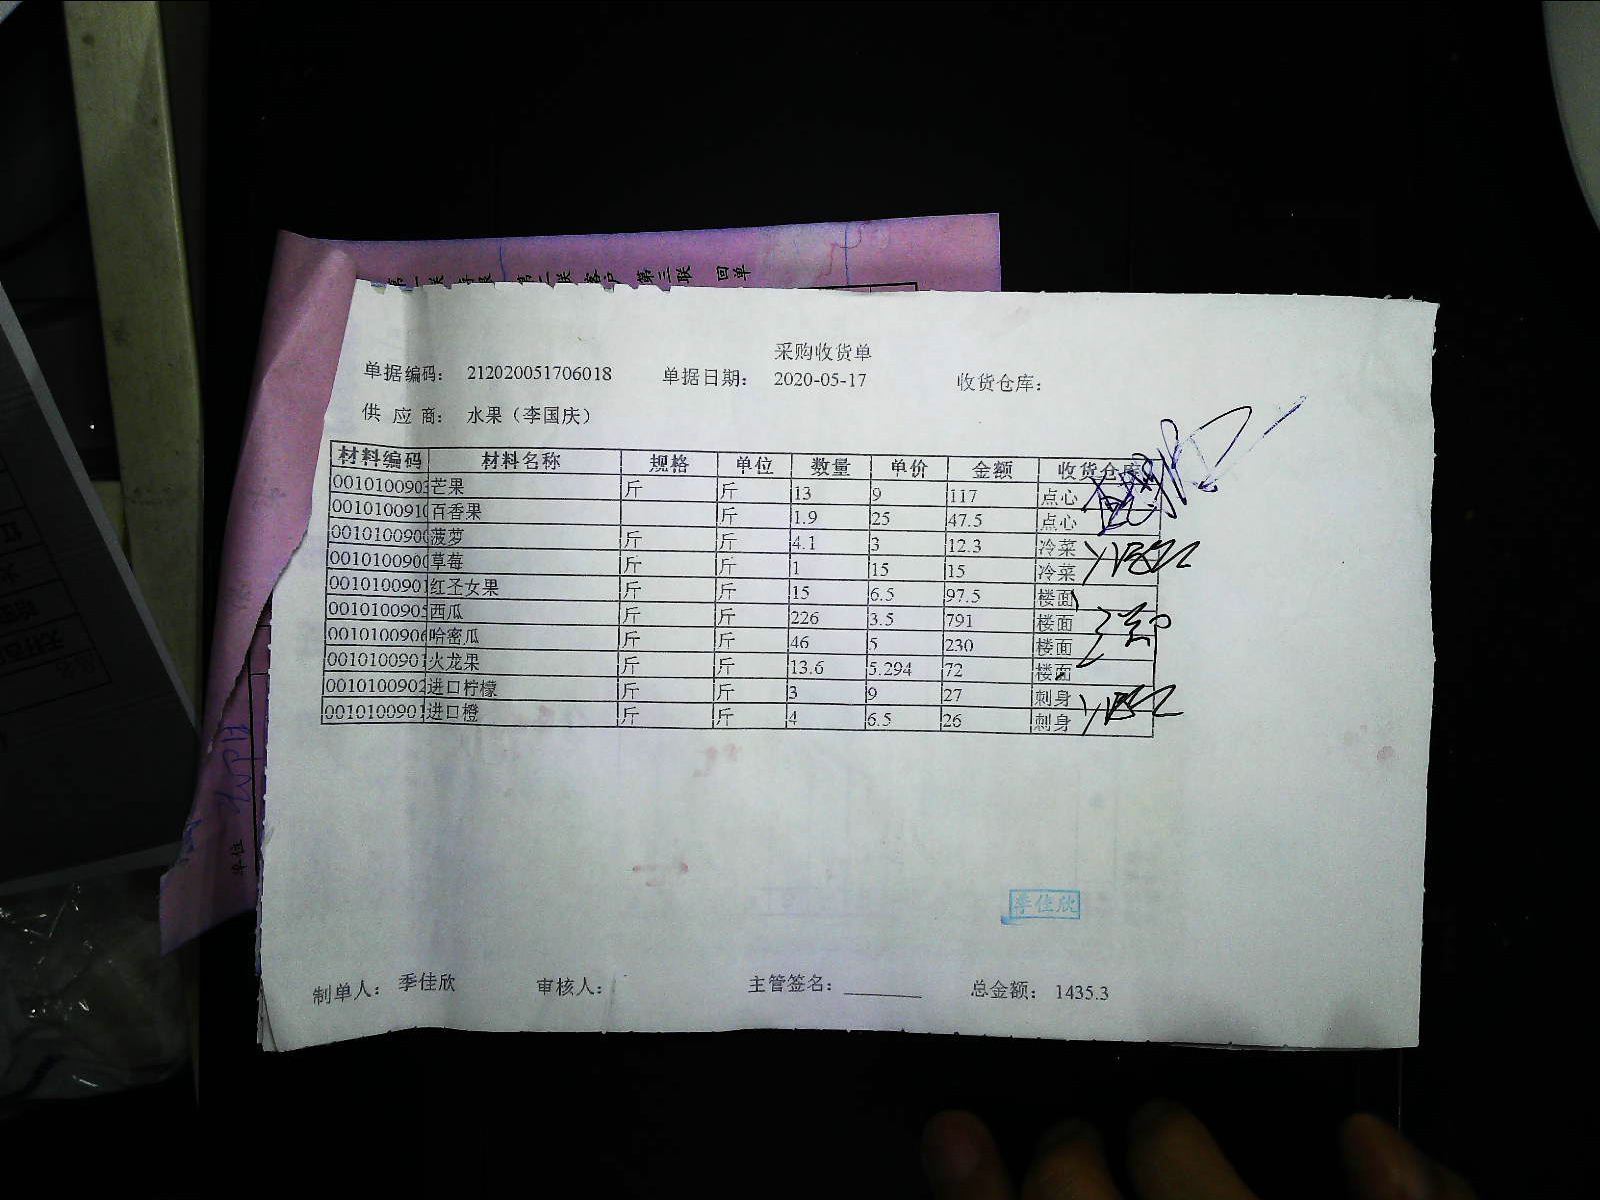 第一联 存根 第二联 客户 第三联 回单
采购收货单
单据编码： 212020051706018 单据日期： 2020-05-17 收货仓库：
供 应 商： 水果（李国庆）
材料编码 材料名称 规格 单位 数量 单价 金额 收货仓库
0010100903 芒果 斤 斤 13 9 117 点心
001010091 百香果 斤 1.9 25 47.5 点心
001010090 菠萝 斤 斤 4.1 3 12.3 冷菜
001010090 草莓 斤 斤 1 15 15 冷菜
001010090 红圣女果 斤 斤 15 6.5 97.5 楼面
001010090 西瓜 斤 斤 226 3.5 791 楼面
001010090 哈密瓜 斤 斤 46 5 230 楼面
001010090 火龙果 斤 斤 13.6 5.294 72 楼面
0010100902 进口柠檬 斤 斤 3 9 27 刺身
001010090 进口橙 斤 斤 4 6.5 26 刺身
季佳欣
制单人： 季佳欣 审核人： 主管签名： ________ 总金额： 1435.3
单位